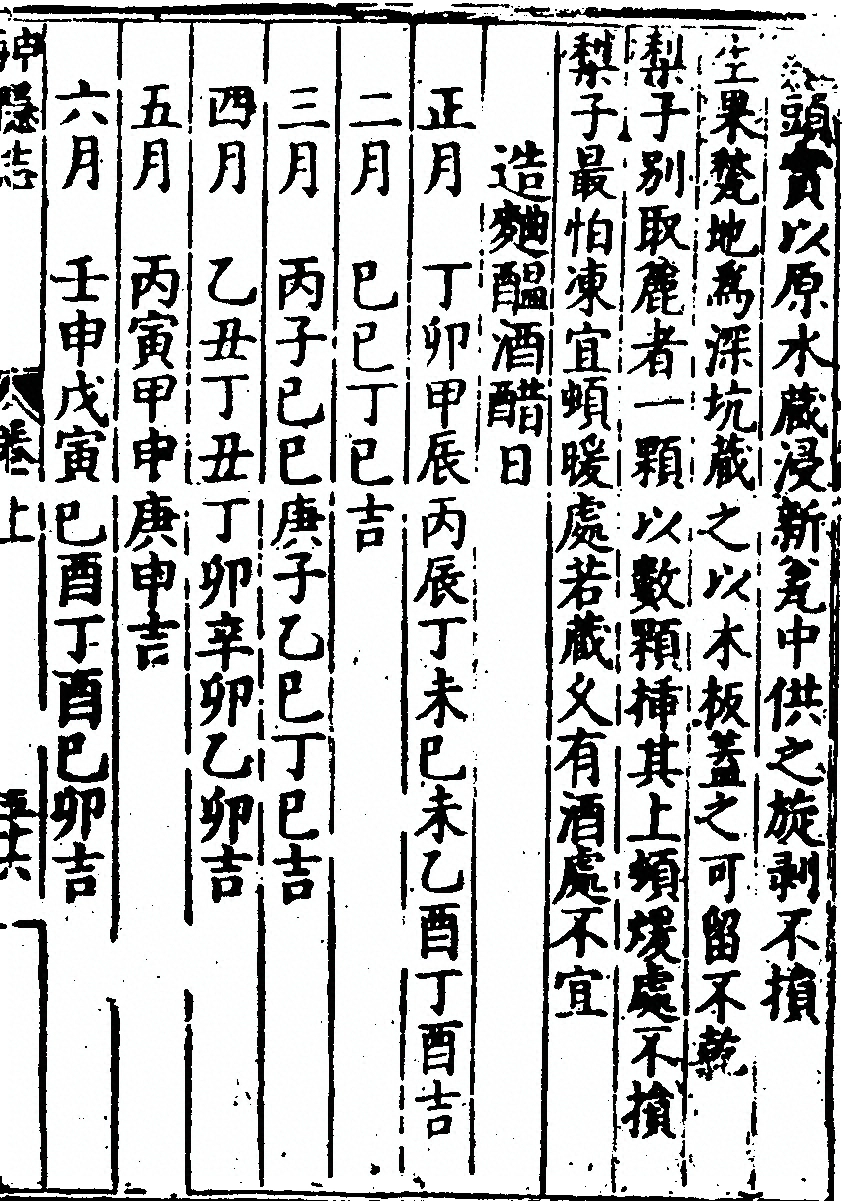 頭實以原水藏浸新瓮中供之旋剥不損
生果甃地爲深坑藏之以木板蓋之可留不乾
梨子别取麄者一顆以數顆揷其上頓煖處不損
梨子最怕凍宜頓暖處若藏火有酒處不宜
造麯醖酒醋日
正月 丁卯甲辰丙辰丁未巳未乙酉丁酉吉
二月 巳巳丁巳吉
三月 丙子巳巳庚子乙巳丁巳吉
四月 乙丑丁丑丁卯辛卯乙卯吉
五月 丙寅甲申庚申吉
六月 壬申戊寅巳酉丁酉巳卯吉
神隱志 卷上 五十六